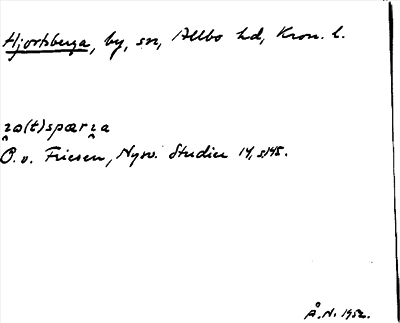 Hjortsberga, by, sn, Allbo hd, Kron. l.
ɿo(t)spærɿa
O. v. Friesen, Nysv. Studier 14, s. 145.
Å. N. 1952.